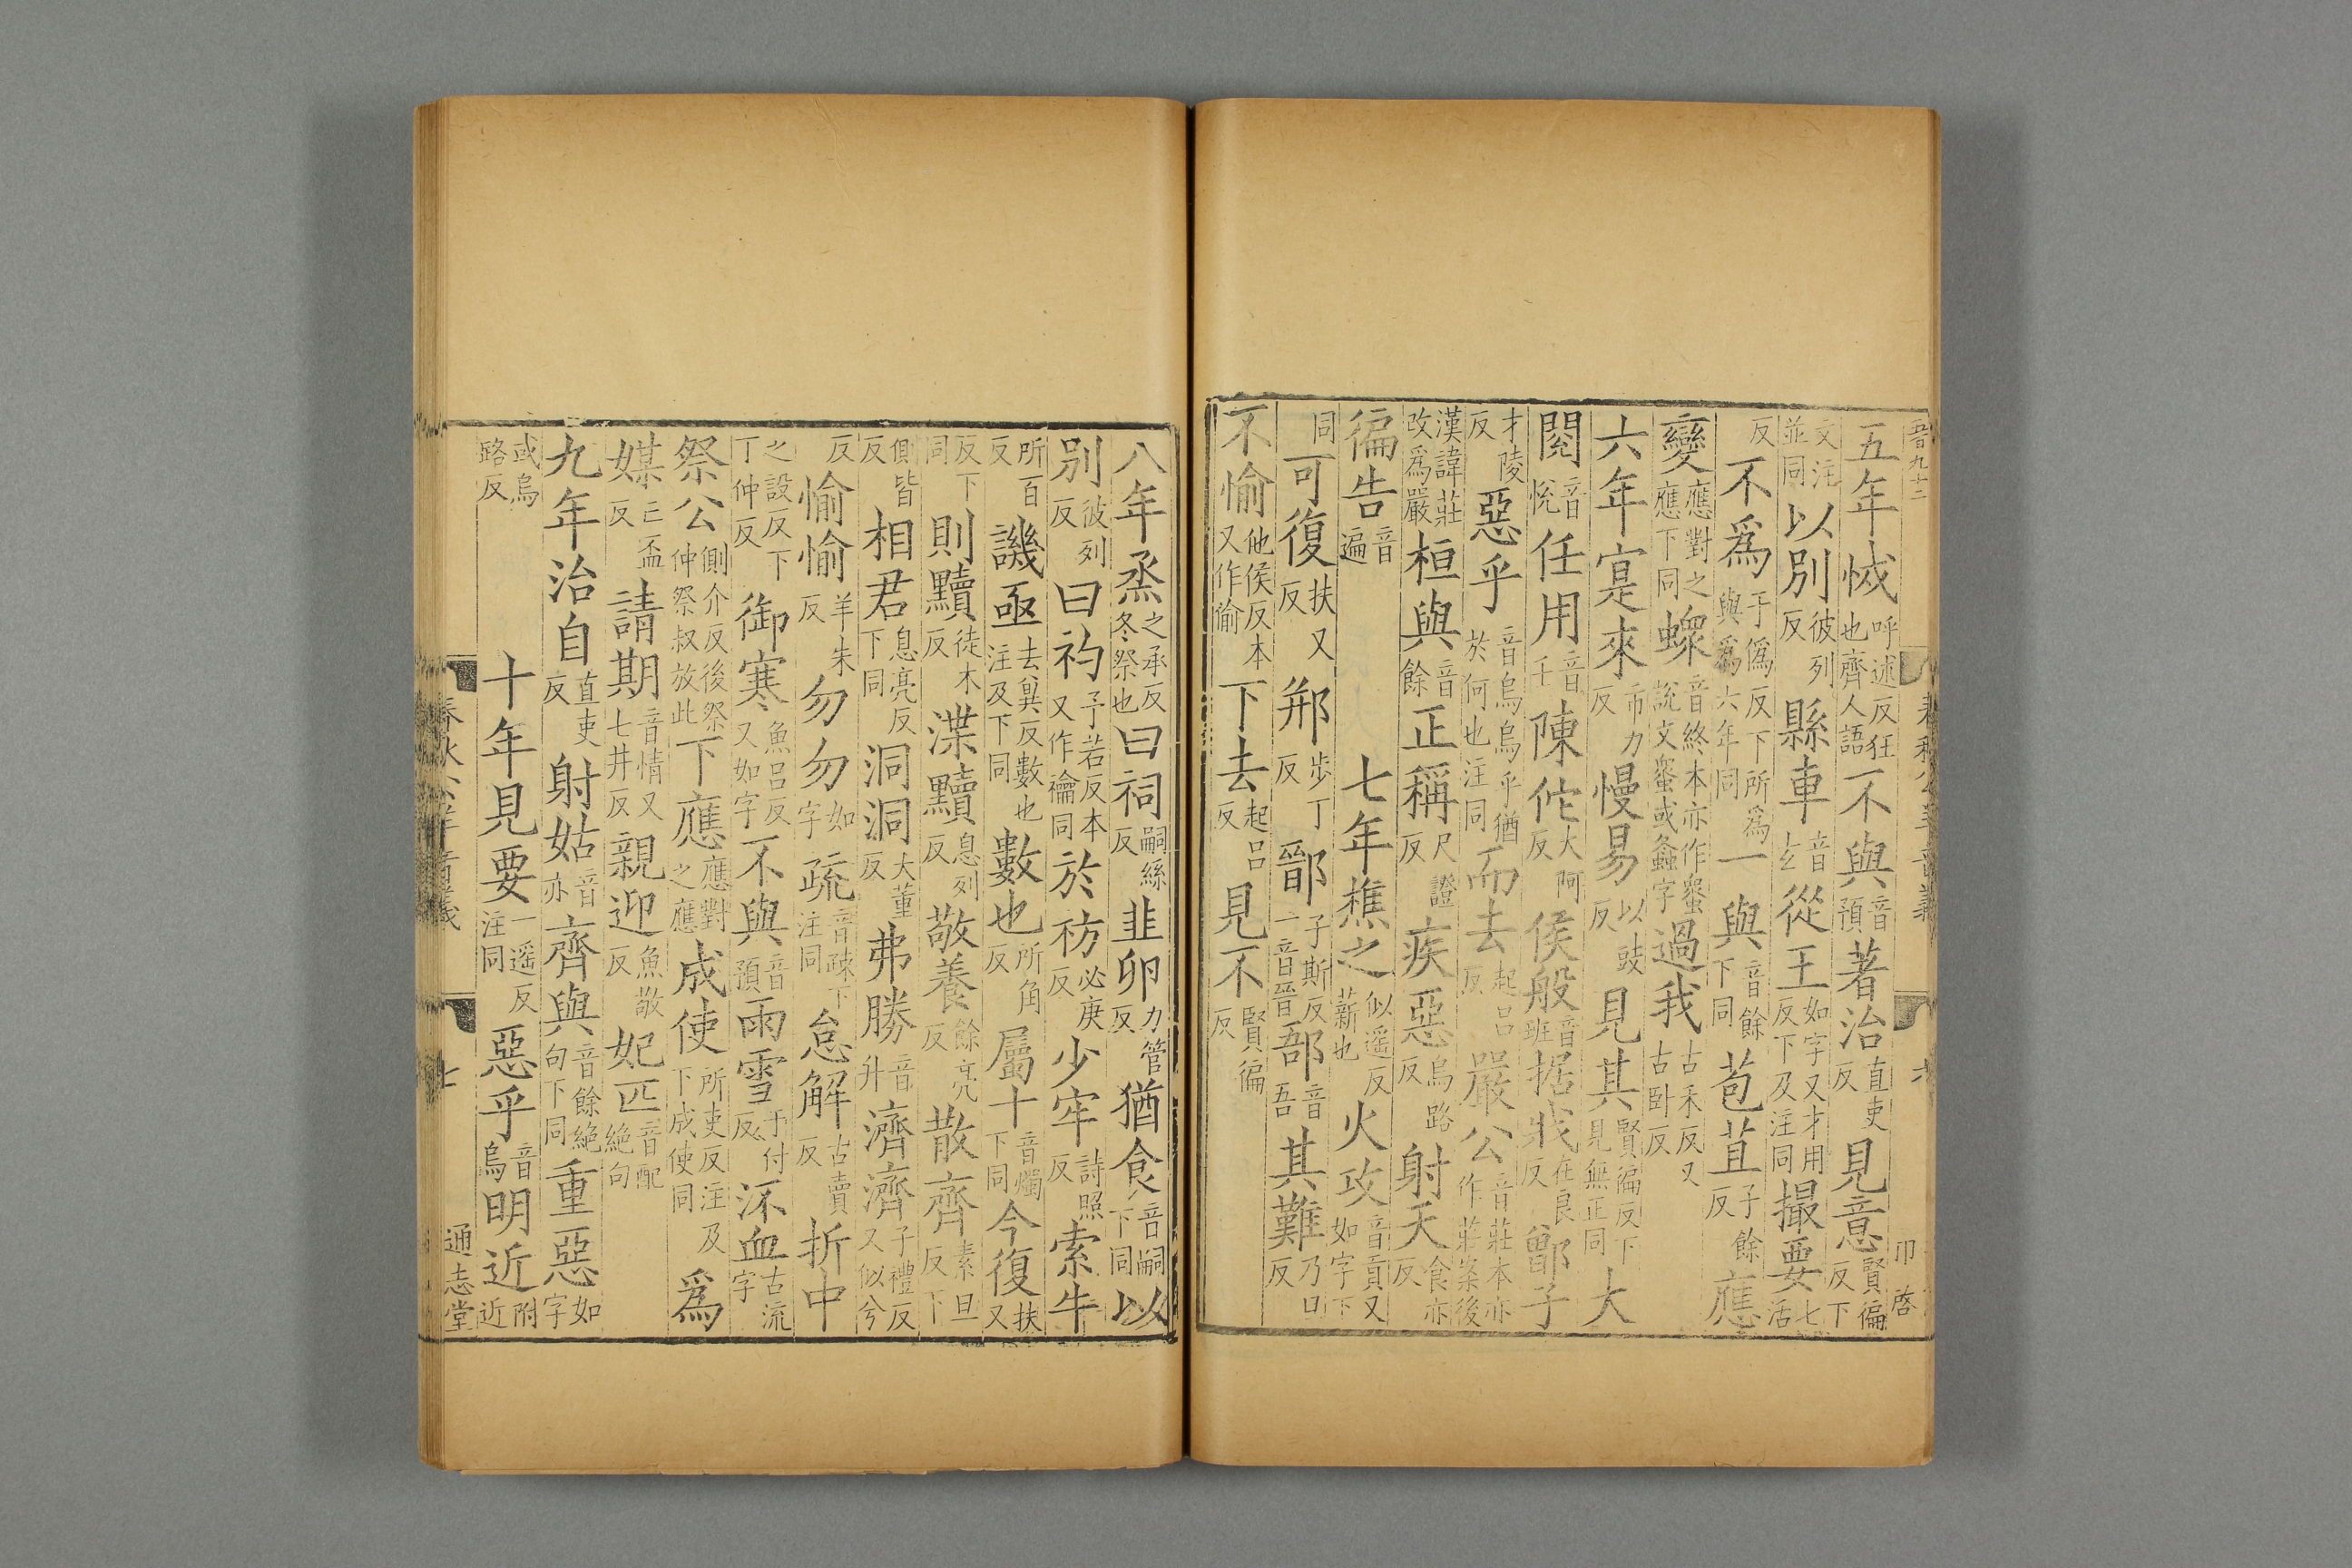 五年怴呼述反狂也齊人語不與音預著治直吏反見意賢徧反下
文注並同以別彼列反縣車音玄從王如字又才用反下及注同撮要七活
反不爲于僞反下所爲與爲六年同一與音餘下同苞苴子餘反應
變應對之應下同螽音終本亦作蝝說文蝝或螽字過我古禾反又古臥反
六年寔來市力反慢易以豉反見其賢徧反下見無正同大
閱音悅任用音壬陳佗大阿反侯般音班据戕在良反鄫子
才陵反惡乎音烏烏乎猶於何也注同而去起呂反嚴公音莊本亦作莊案後
漢諱莊改爲嚴桓與音餘正稱尺證反疾惡烏路反射天食亦反
徧告音遍七年樵之似遥反薪也火攻音貢又如字下
同可復扶又反郱步丁反鄑子斯反一音晉郚音吾其難乃旦反
不愉他侯反本又作偷下去起呂反見不賢徧反
八年烝之承反冬祭也曰祠嗣絲反韭卵力管反猶食音嗣下同以
別彼列反曰礿予若反本又作禴同於祊必庚反少牢詩照反索牛
所百反譏亟去異反數也注及下同數也所角反屬十音燭下同今復扶又
反下同則黷徒木反渫黷息列反敬養餘亮反散齊素旦反下
側皆反相君息亮反下同洞洞大董反弗勝音升濟濟子禮反又似兮
反愉愉羊朱反勿勿如字疏音疎下注同怠解古賣反折中
之設反下丁仲反御寒魚呂反又如字不與音預雨雪于付反㳅血古流字
祭公側介反後祭仲祭叔放此下應應對之應成使所吏反注及下成使同爲
媒亡丕反請期音情又七井反親迎魚敬反妃匹音配絶句
九年治自直吏反射姑音亦齊與音餘絶句下同重惡如字
或烏路反十年見要一遥反注同惡乎音烏明近附近
通志堂